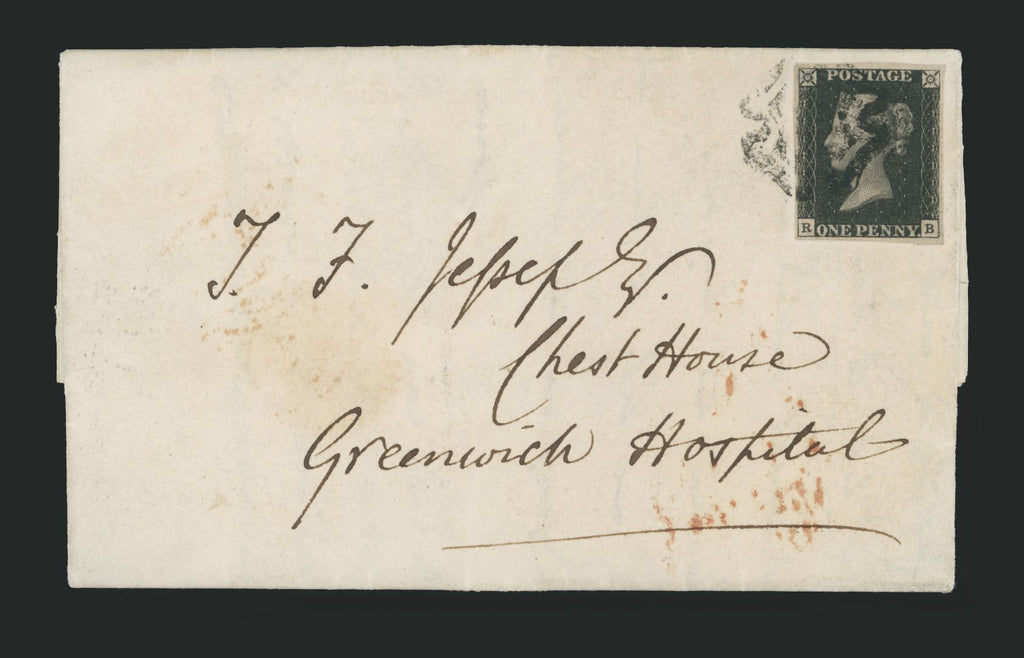 POSTAGE
R ONE PENNY B
J. F. Jessep Esqr.
Chest House
Greenwich Hospital